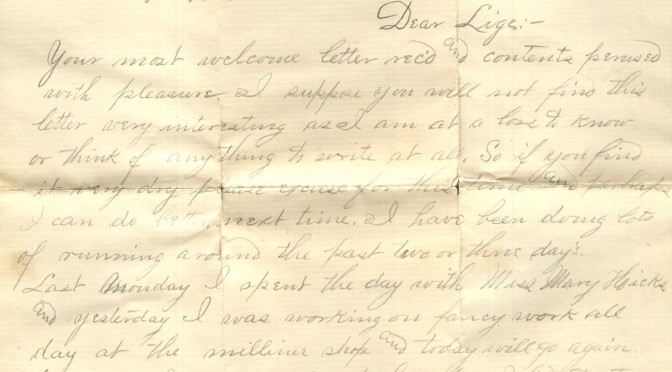 Dear Lige:-
Your most welcome letter rec'd and contents perused
with pleasure. I suppose you will not find this
letter very interesting as I am at a loss to know
or think of any thing to write at all. So if you find
it very dry please excuse for this time and perhaps
I can do better next time. I have been doing lots
of running around the past two or three day's.
Last Monday I spent the day with Miss Mary Hicks
and yesterday I was working on fancy work all
day at the milliner shop and today will go again.